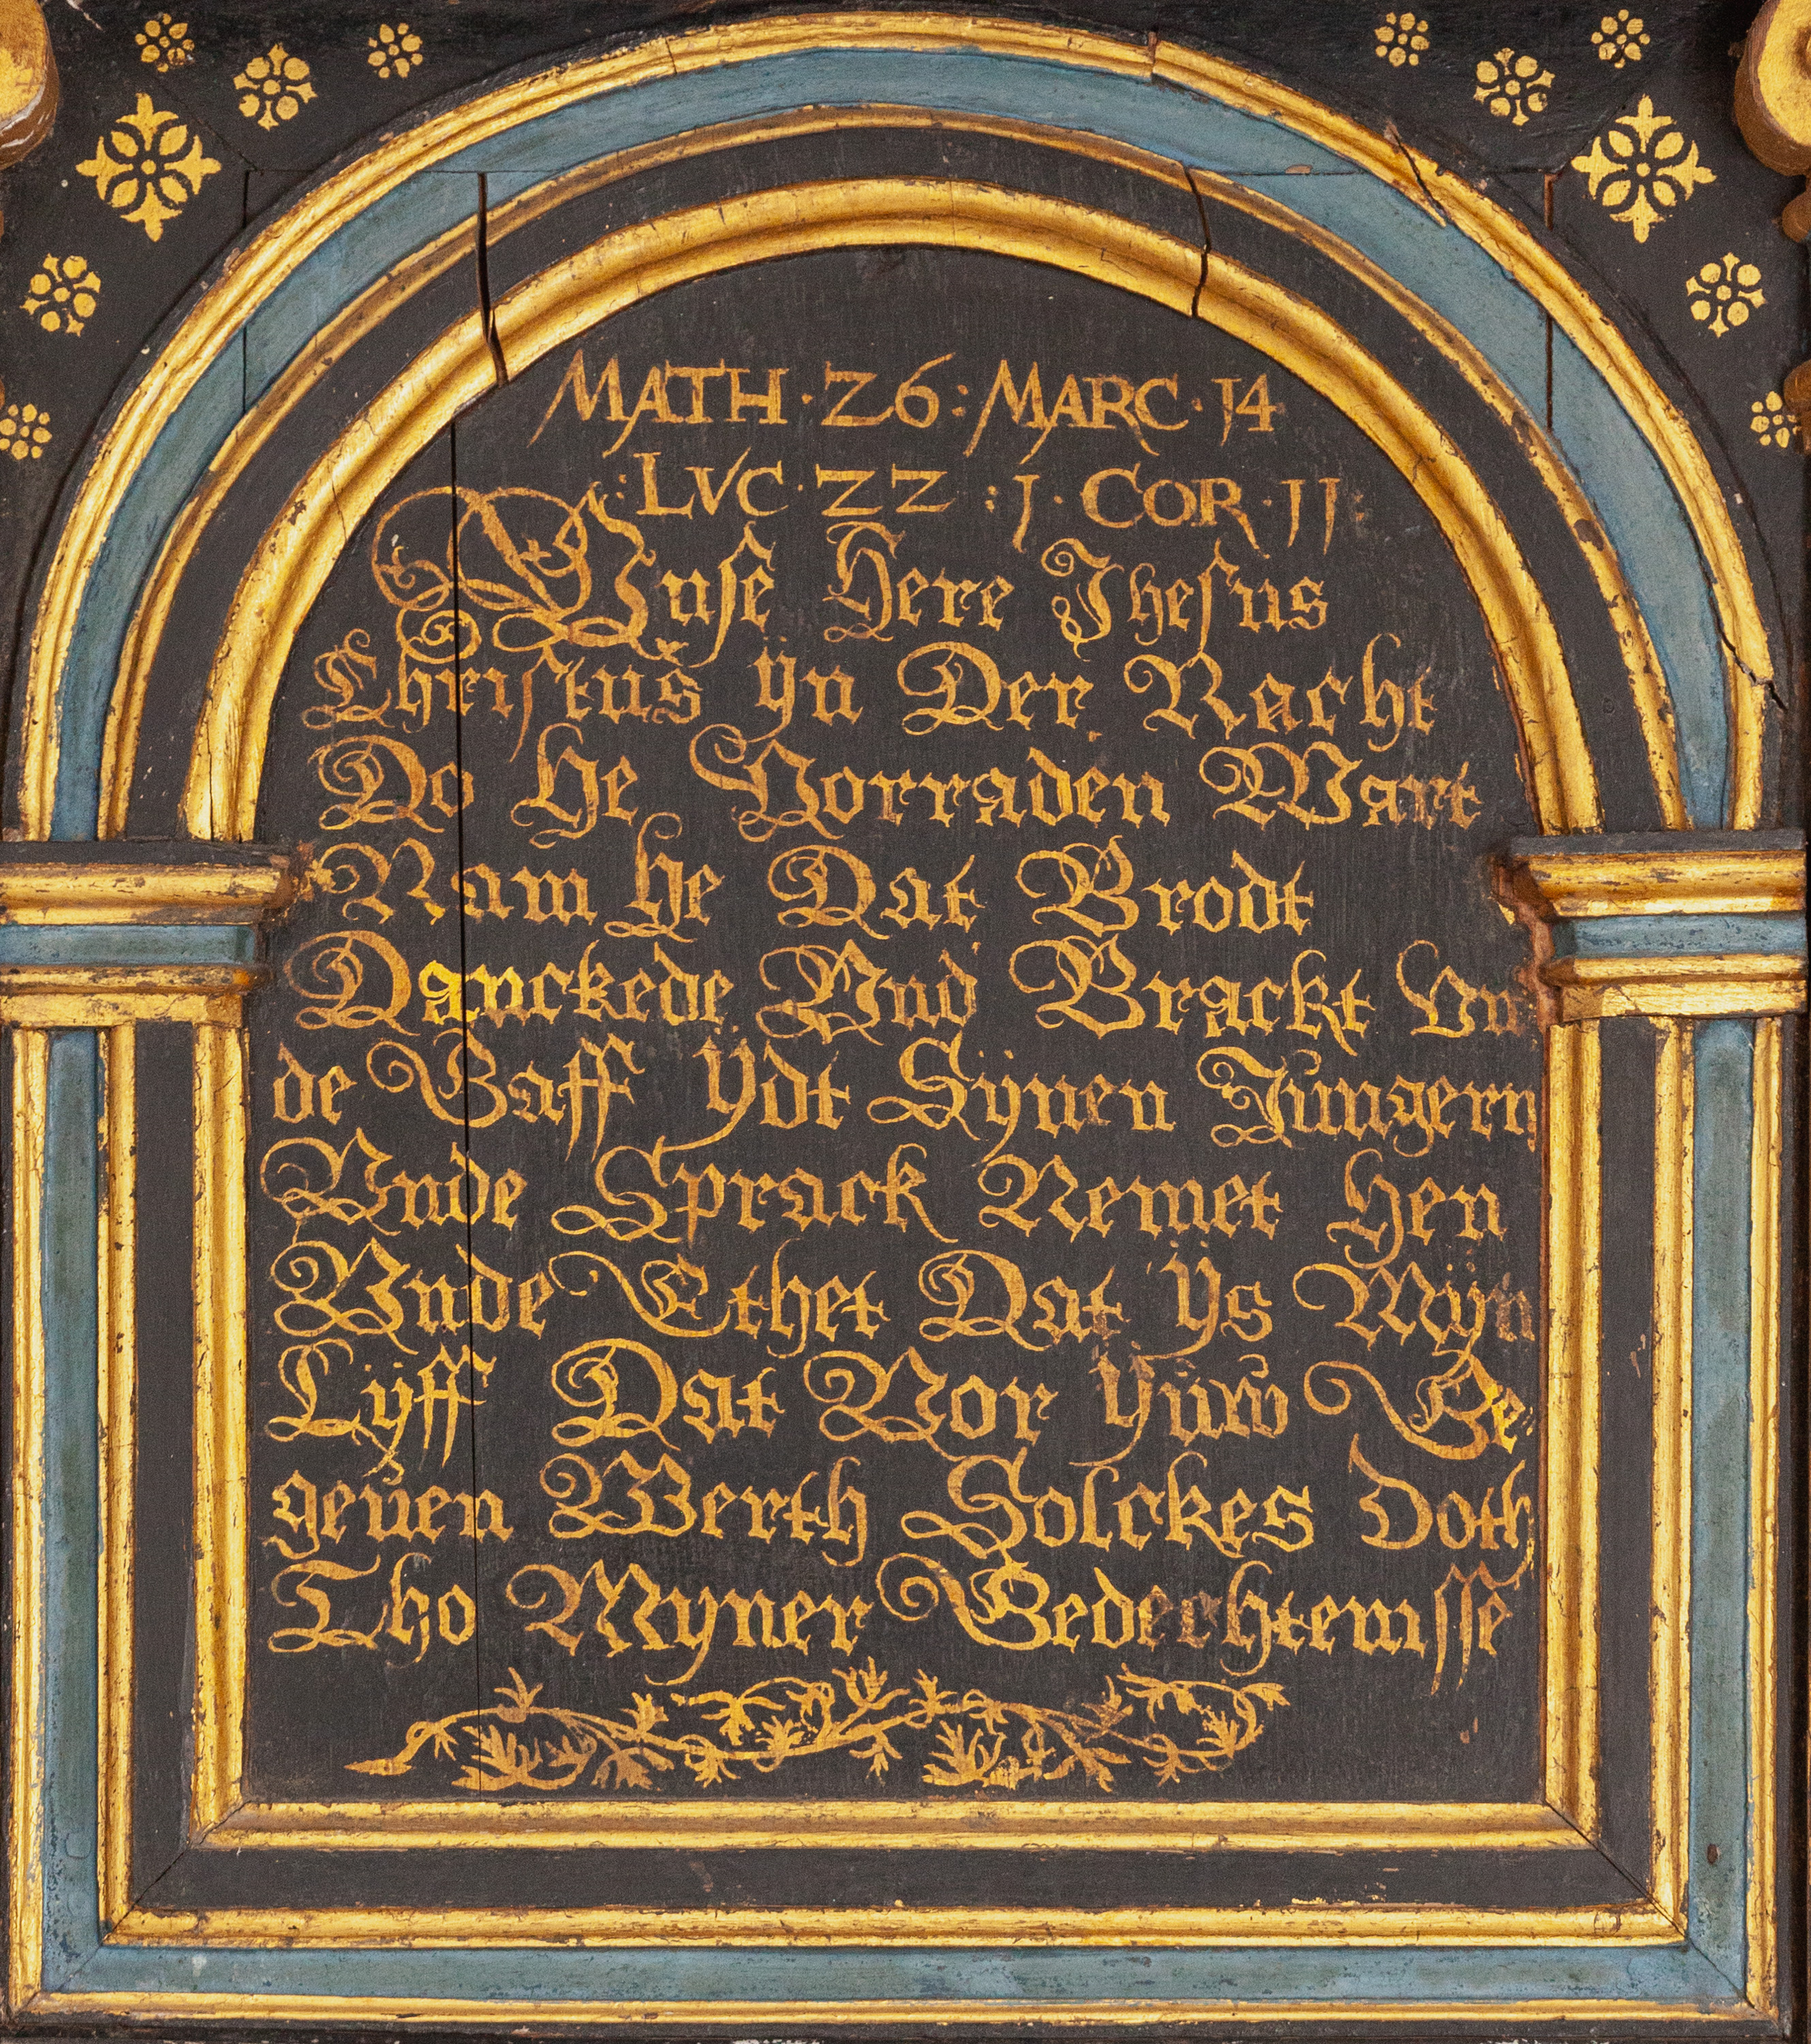 MATH · 26 : MARC · 14
: LVC · 22 : 1 · COR · 11 :
Vnse Here Jhesus
Christus ÿn Der Nacht
Do He Vorraden Wart
Nam he Dat Brodt
Danckede Vnd Brackt Vn
de Gaff Ÿdt Sÿnen Jungern
Vnde Sprack Nemet Hen
Vnde Ethet Dat Ÿs Mÿn
Lÿff Dat Vor Ÿuw Ge
geuen Werth Solckes Doth
Tho Myner Gedechtenisse